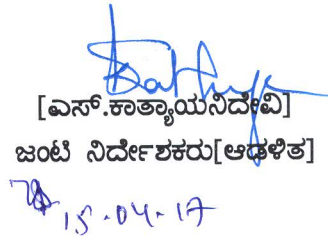 [ಎಸ್.ಕಾತ್ಯಾಯನಿದೇವಿ]
ಜಂಟಿ ನಿರ್ದೇಶಕರು[ಆಡಳಿತ]
15-04-17